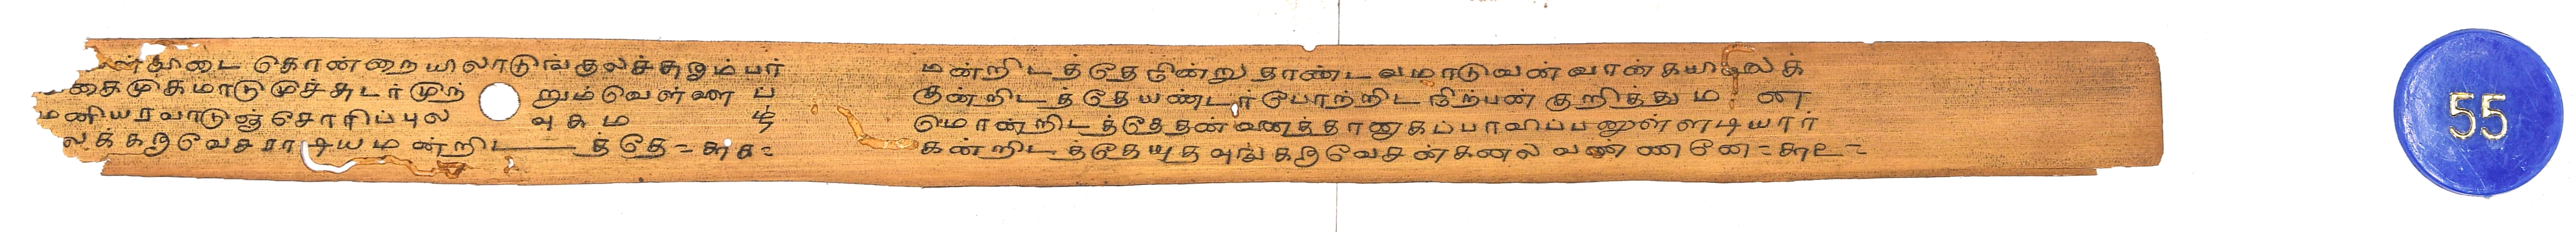 ள்விடை கொன்றையிலாடுங்குலச்சுரும்பர்
கைமுகமாடுமுச்சுடர்முந றும்வெள்ள ப
மனியரவாடுஞ்சோரிப்புல வுசும
லக்கருவேசராடியமன்றிடத்தே = ௬௧ =
மன்றிடத்தேநின்றுதாண்டவமாடுவன்வான்கயிலைக்
குன்றிடத்தேயண்டர்போற்றிடநிற்பன்குறித்தும ன
மொன்றிடத்தேதன்வணத்தானுகப்பாவிப்பனுள்ளடியார்
கன்றிடத்தேயுதவுங்கருவேசன்கனல்வண்ணனே = ௬௨ =
55